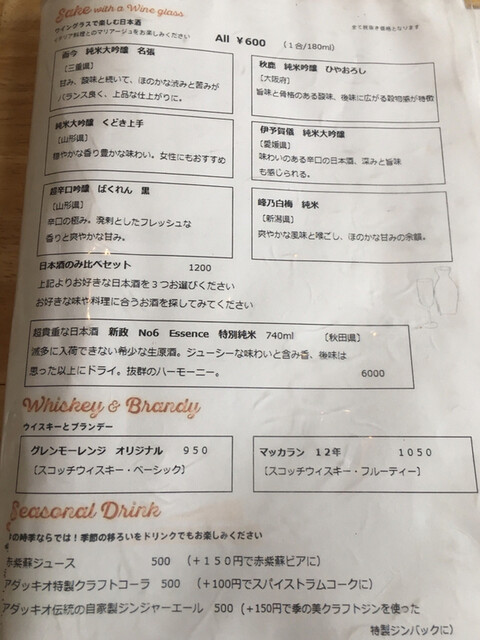 Sake with a Wine glass
ワイングラスで楽しむ日本酒
イタリア料理とのマリアージュをお楽しみください
全て税抜き価格となります
All ￥600 （１合/180ml）
而今 純米大吟醸 名張
［三重県］
甘み、酸味と続いて、ほのかな渋みと苦みが
バランス良く、上品な仕上がりに。
秋鹿 純米吟醸 ひやおろし
［大阪府］
旨味と骨格のある酸味、後味に広がる穀物感が特徴
純米大吟醸 くどき上手
［山形県］
穏やかな香り豊かな味わい。女性にもおすすめ
伊予賀儀 純米大吟醸
［愛媛県］
味わいのある辛口の日本酒、深みと旨味
も感じられる。
超辛口吟醸 ばくれん 黒
［山形県］
辛口の極み。溌剌としたフレッシュな
香りと爽やかな甘み。
峰乃白梅 純米
［新潟県］
爽やかな風味と喉ごし、ほのかな甘みの余韻。
日本酒のみ比べセット 1200
上記よりお好きな日本酒を３つお選びください
お好きな味や料理に合うお酒を探してみてください
超貴重な日本酒 新政 No6 Essence 特別純米 740ml ［秋田県］
滅多に入荷できない希少な生原酒。ジューシーな味わいと含み香、後味は
思った以上にドライ。抜群のハーモニー。 6000
Whiskey & Brandy
ウイスキーとブランデー
グレンモーレンジ オリジナル ９５０
［スコッチウィスキー・ベーシック］
マッカラン １２年 １０５０
［スコッチウィスキー・フルーティー］
Seasonal Drink
の時季ならでは！季節の移ろいをドリンクでもお楽しみください
赤紫蘇ジュース 500 （＋１５０円で赤紫蘇ビアに）
アダッキオ特製クラフトコーラ 500 （+100円でスパイストラムコークに）
アダッキオ伝統の自家製ジンジャーエール 500 (+150円で季の美クラフトジンを使った
特製ジンバックに）